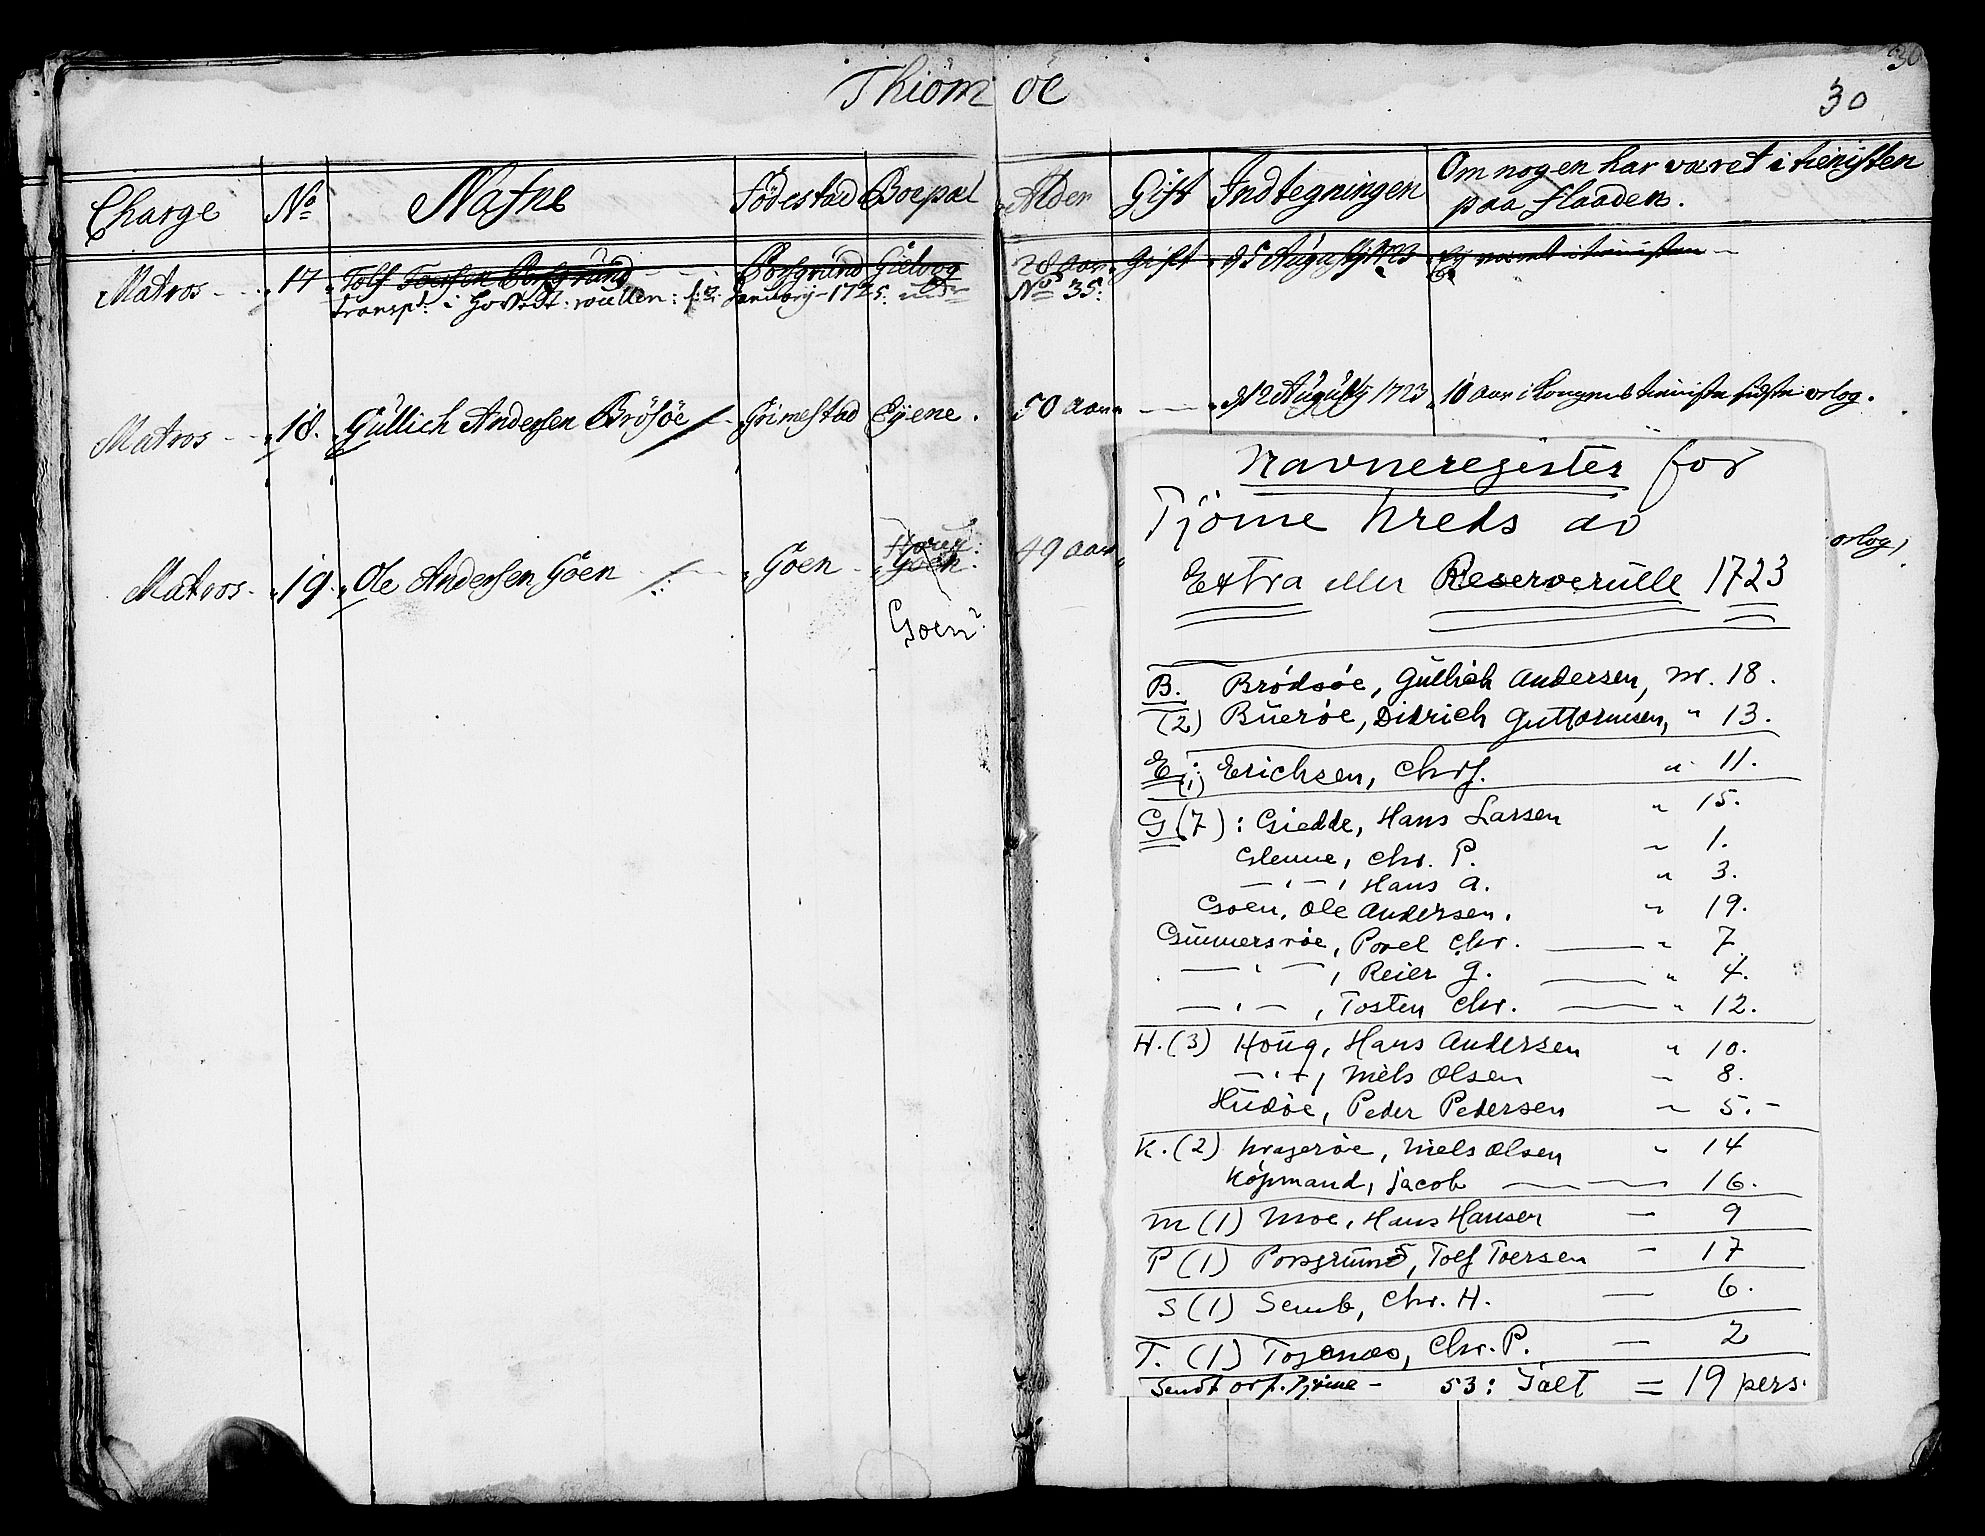 30
Thiöm öe
30
Charge No Nafne Födestæd Boepæl Alder Gift Indtegningen Om nogen har været i tienisten
paa flaaden.
Matros 17 Tolf Toersen Porsgrund Porsgrund 28 aar Gift d 5 Augusti 1723
transpt: i Hoved: rullen: d: 2: January 1725. under No 35:
Matros 18. Gullich Andersen Brösöe Grimestad Eÿene. 50 aar d 12 Augusti 1723 10 aar i Kongens tieniste sidste orlog.
Matros 19. Ole Andersen Göen Göen Göen. 49 aar orlog,
Goen?
Navneregister for
Tjöme Kreds av
Extra eller Reserverulle 1723
B. Brødsøe, Gullich Andersen, Nr. 18.
(2) Buerøe, Didrich Guttormsen, " 13.
E. (1) Erichsen, Chrs. " 11.
G (7): Giedde, Hans Larsen " 15.
Glenne, Chr. P. " 1.
— " — , Hans A. " 3.
Goen, Ole Andersen. " 19.
Gunnersröe, Povel Chr. — " 7
— " — , Reier G. — " 4.
— " — , Tosten Chr. — " 12.
H. (3) Houg, Hans Andersen " 10.
— " — , Niels Olsen " 8.
Hudöe, Peder Pedersen " 5. -
K. (2) Kragerøe, Niels Olsen " 14
Köpmand, Jacob — 16.
M (1) Moe, Hans Hansen — 9
P (1) Porsgrund, Tolf Toersen — 17
S (1) Semb, Chr. H. — 6.
T. (1) Togenæs, Chr. P. — 2
Sendt orf. Tjöme - 53: Ialt = 19 pers.